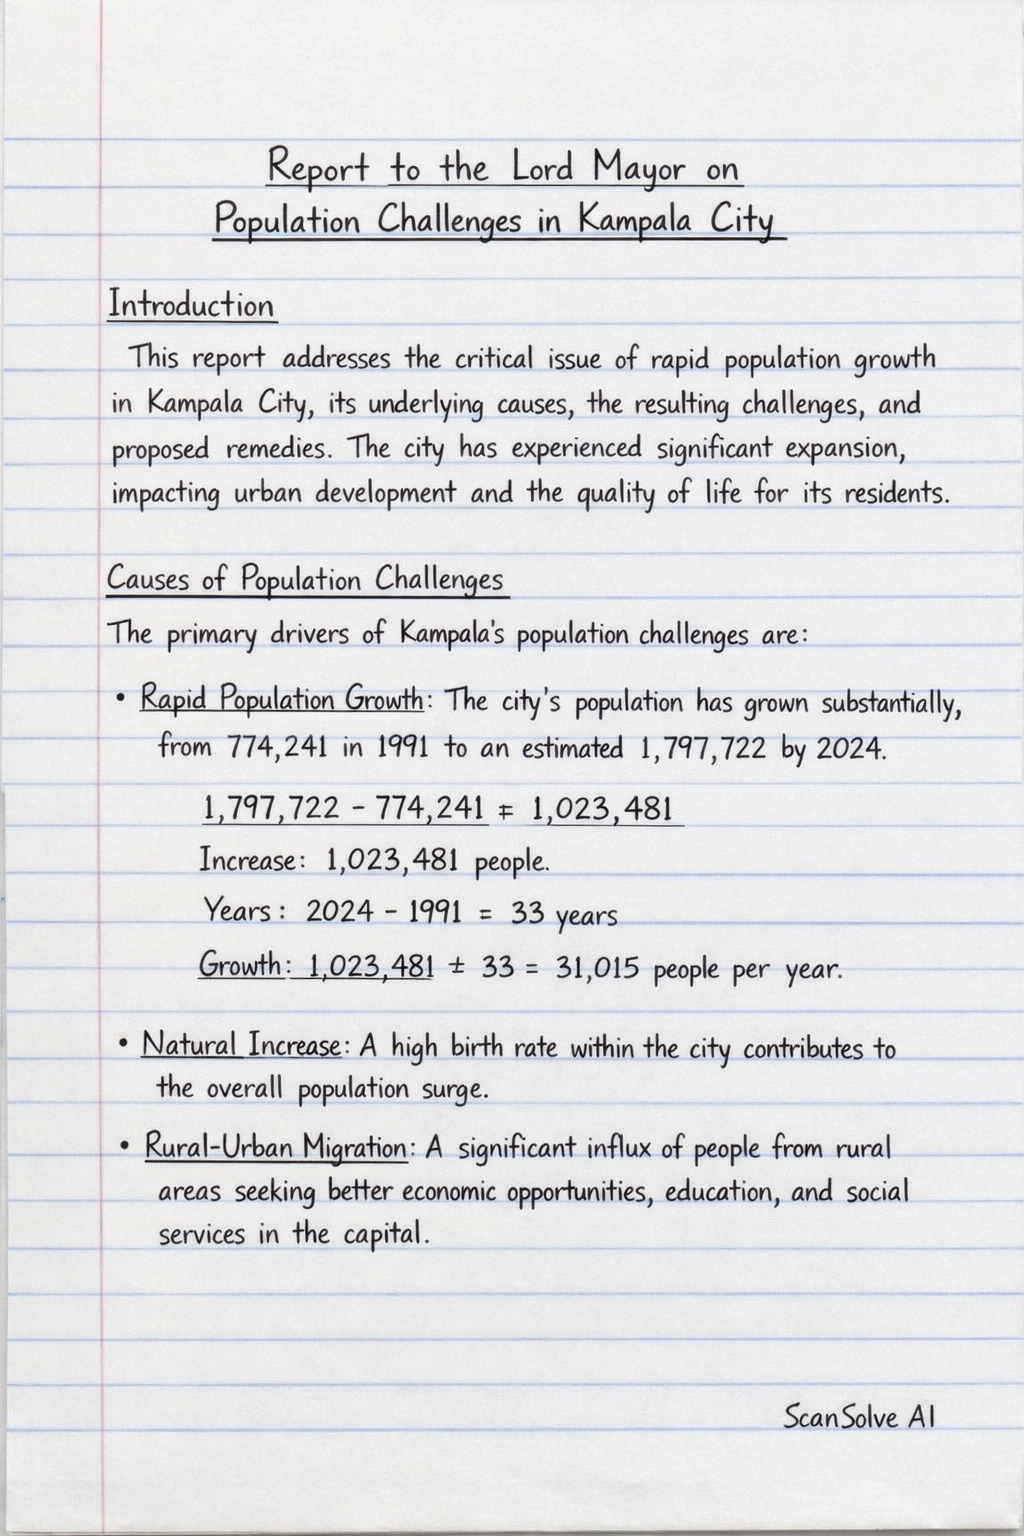 Report to the Lord Mayor on
Population Challenges in Kampala City
Introduction
This report addresses the critical issue of rapid population growth
in Kampala City, its underlying causes, the resulting challenges, and
proposed remedies. The city has experienced significant expansion,
impacting urban development and the quality of life for its residents.
Causes of Population Challenges
The primary drivers of Kampala's population challenges are:
• Rapid Population Growth: The city's population has grown substantially,
from 774,241 in 1991 to an estimated 1,797,722 by 2024.
1,797,722 - 774,241 ≠ 1,023,481
Increase: 1,023,481 people.
Years: 2024 - 1991 = 33 years
Growth: 1,023,481 ± 33 = 31,015 people per year.
• Natural Increase: A high birth rate within the city contributes to
the overall population surge.
• Rural-Urban Migration: A significant influx of people from rural
areas seeking better economic opportunities, education, and social
services in the capital.
ScanSolve AI